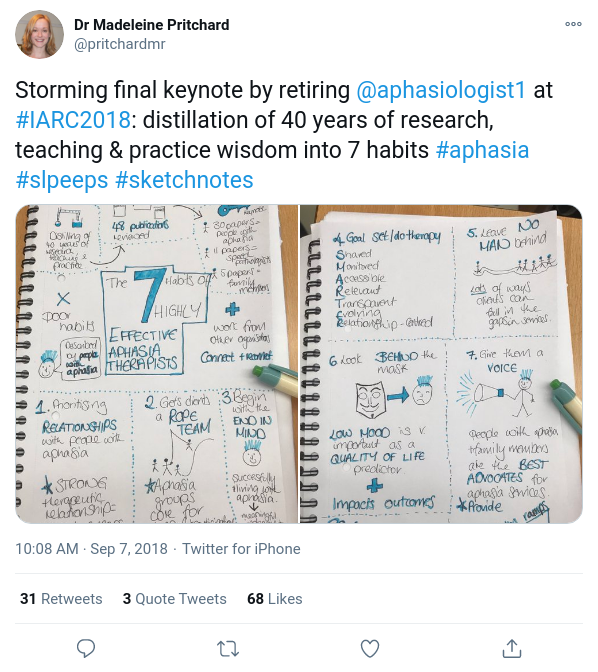 Dr Madeleine Pritchard
@pritchardmr
Storming final keynote by retiring @aphasiologist1 at
#IARC2018: distillation of 40 years of research,
teaching & practice wisdom into 7 habits #aphasia
#slpeeps #sketchnotes
Distilling of
40 years of
research,
teaching &
practice
48 publications
reviewed
30 papers =
people with
aphasia
11 papers =
speech
5 papers =
family
members
The 7 Habits of
HIGHLY
EFFECTIVE
APHASIA
THERAPISTS
X
poor
habits
Described
by people
with
aphasia
+
work from
other
Connect +
1. Prioritising
RELATIONSHIPS
with people with
aphasia
STRONG
therapeutic
relationship=
2. Gets clients
a ROPE
TEAM
Aphasia
groups
core for
3. Begin
with the
END IN
MIND
Successfully
living with
aphasia.
meaningful
4. Goal Set/do therapy
Shared
Monitored
Accessible
Relevant
Transparent
Evolving
Relationship-centred
5. Leave NO
MAN behind
Lots of ways
clients can
fall in the
gaps in services.
6 Look BEHIND the
mask
LOW MOOD is v.
important as a
QUALITY OF LIFE
predictor
+
Impacts outcomes
7. Give them a
VOICE
People with aphasia
+ family members
are the BEST
ADVOCATES for
aphasia services
Provide
ramps
10:08 AM · Sep 7, 2018 · Twitter for iPhone
31 Retweets 3 Quote Tweets 68 Likes